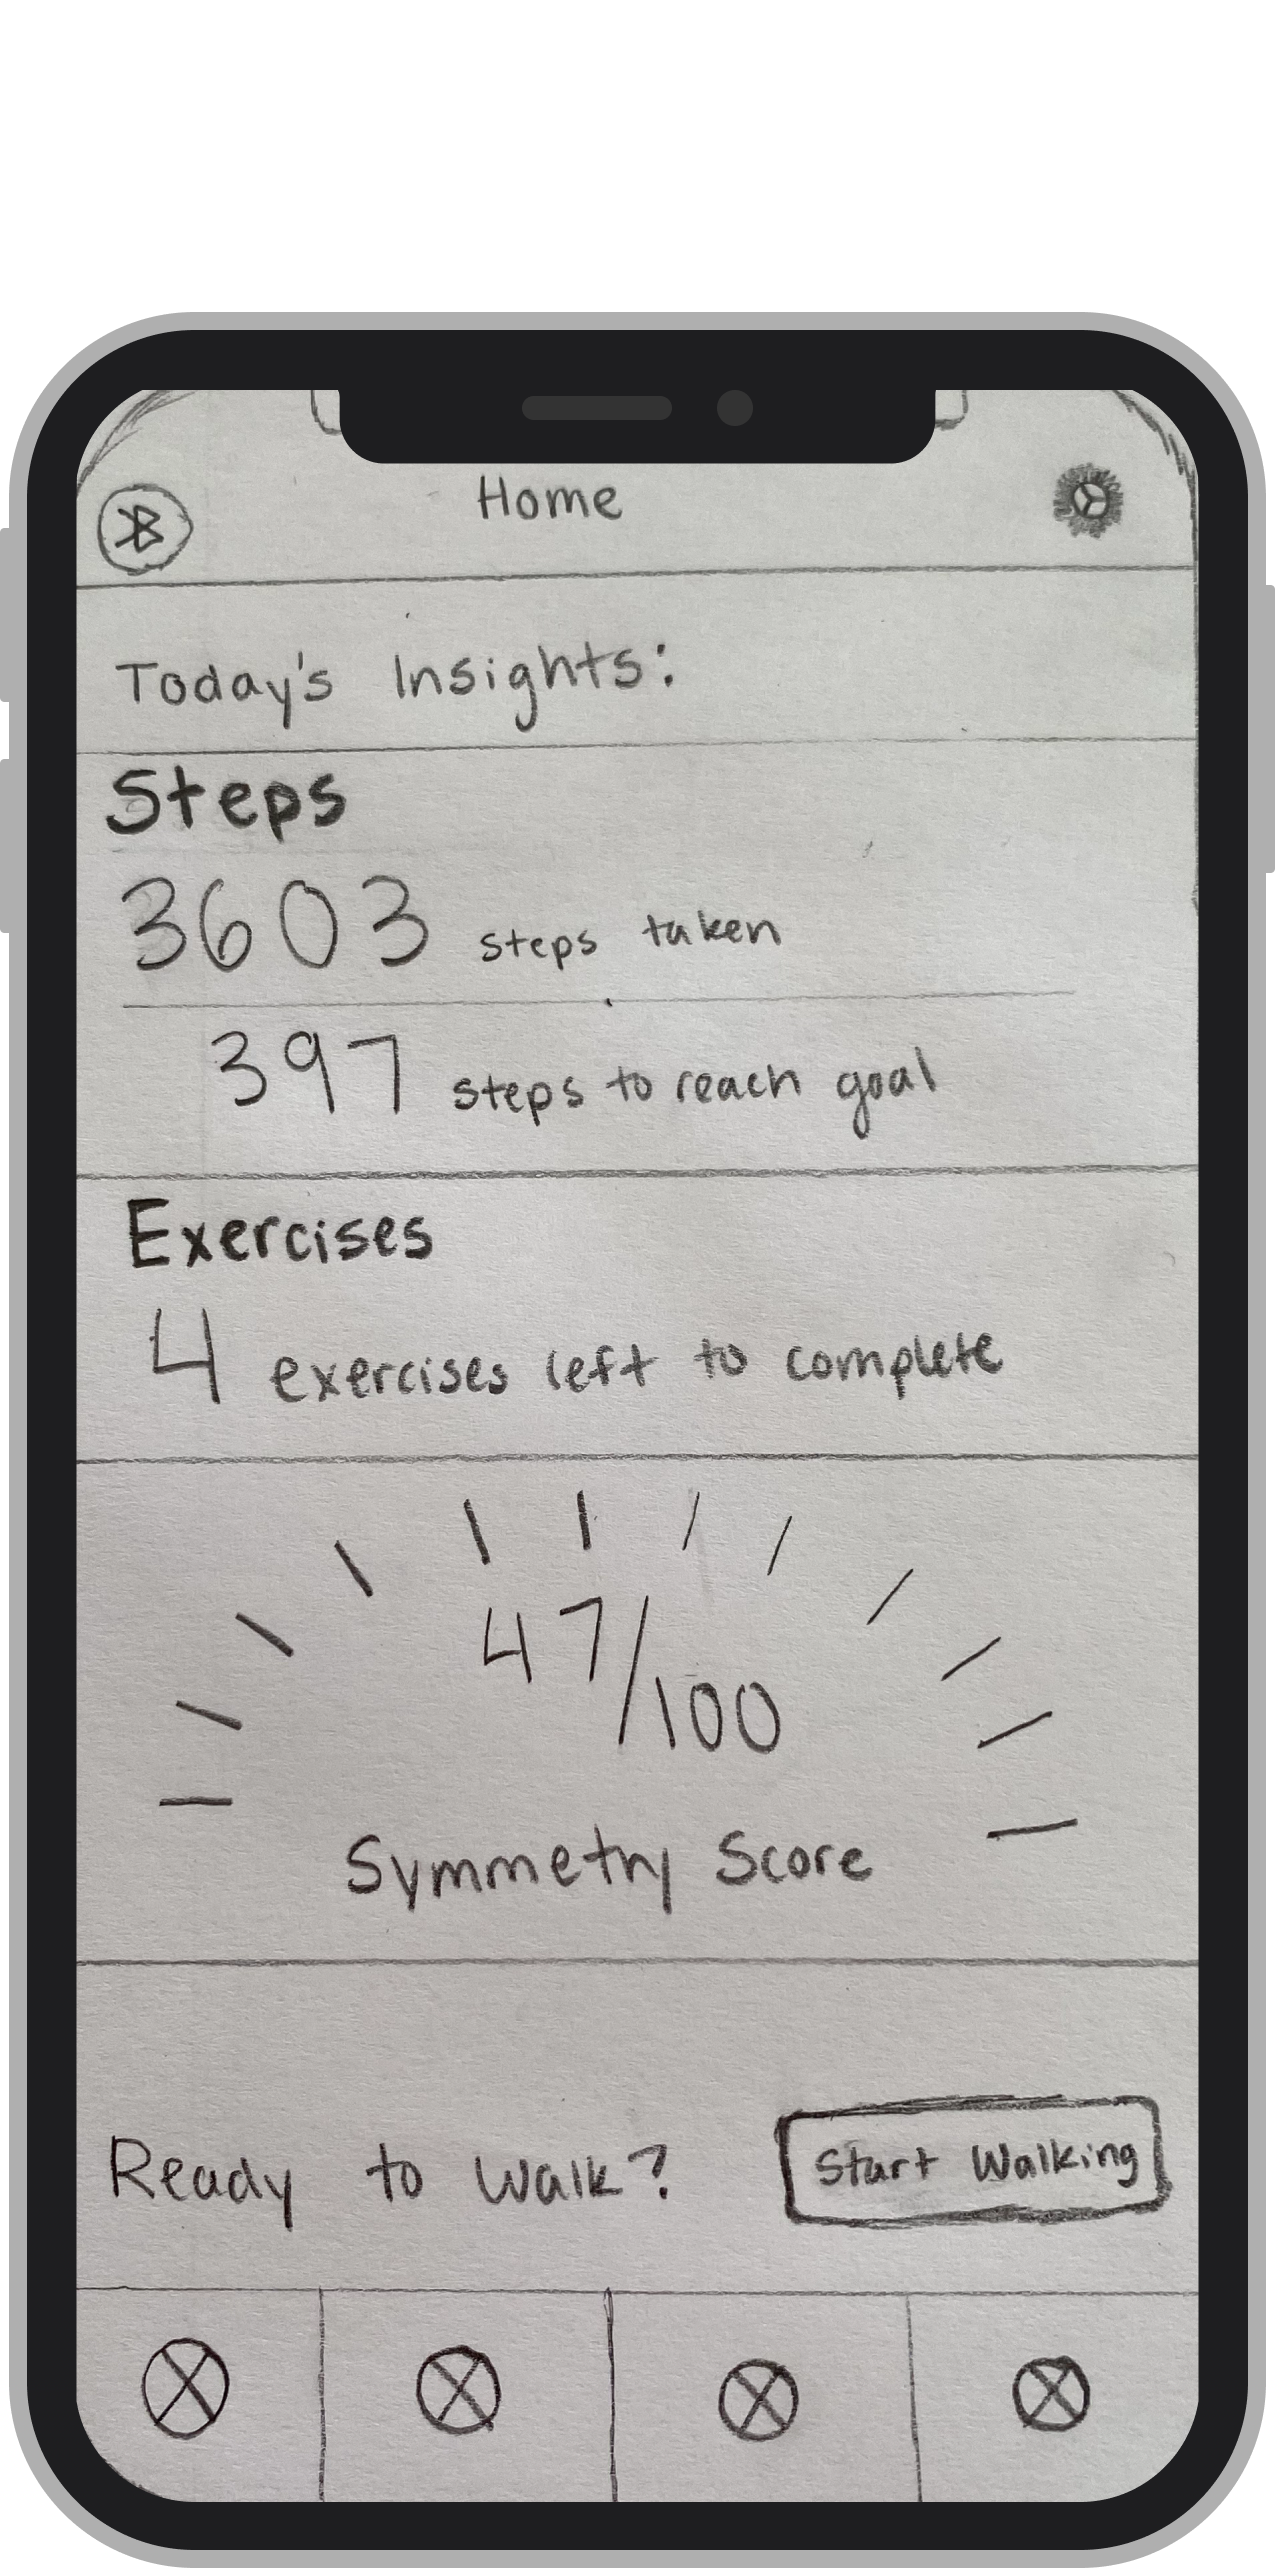 Home
Today's Insights:
Steps
3603 steps taken
397 steps to reach goal
Exercises
4 exercises left to complete
47/100
Symmetry Score
Ready to Walk?
Start Walking